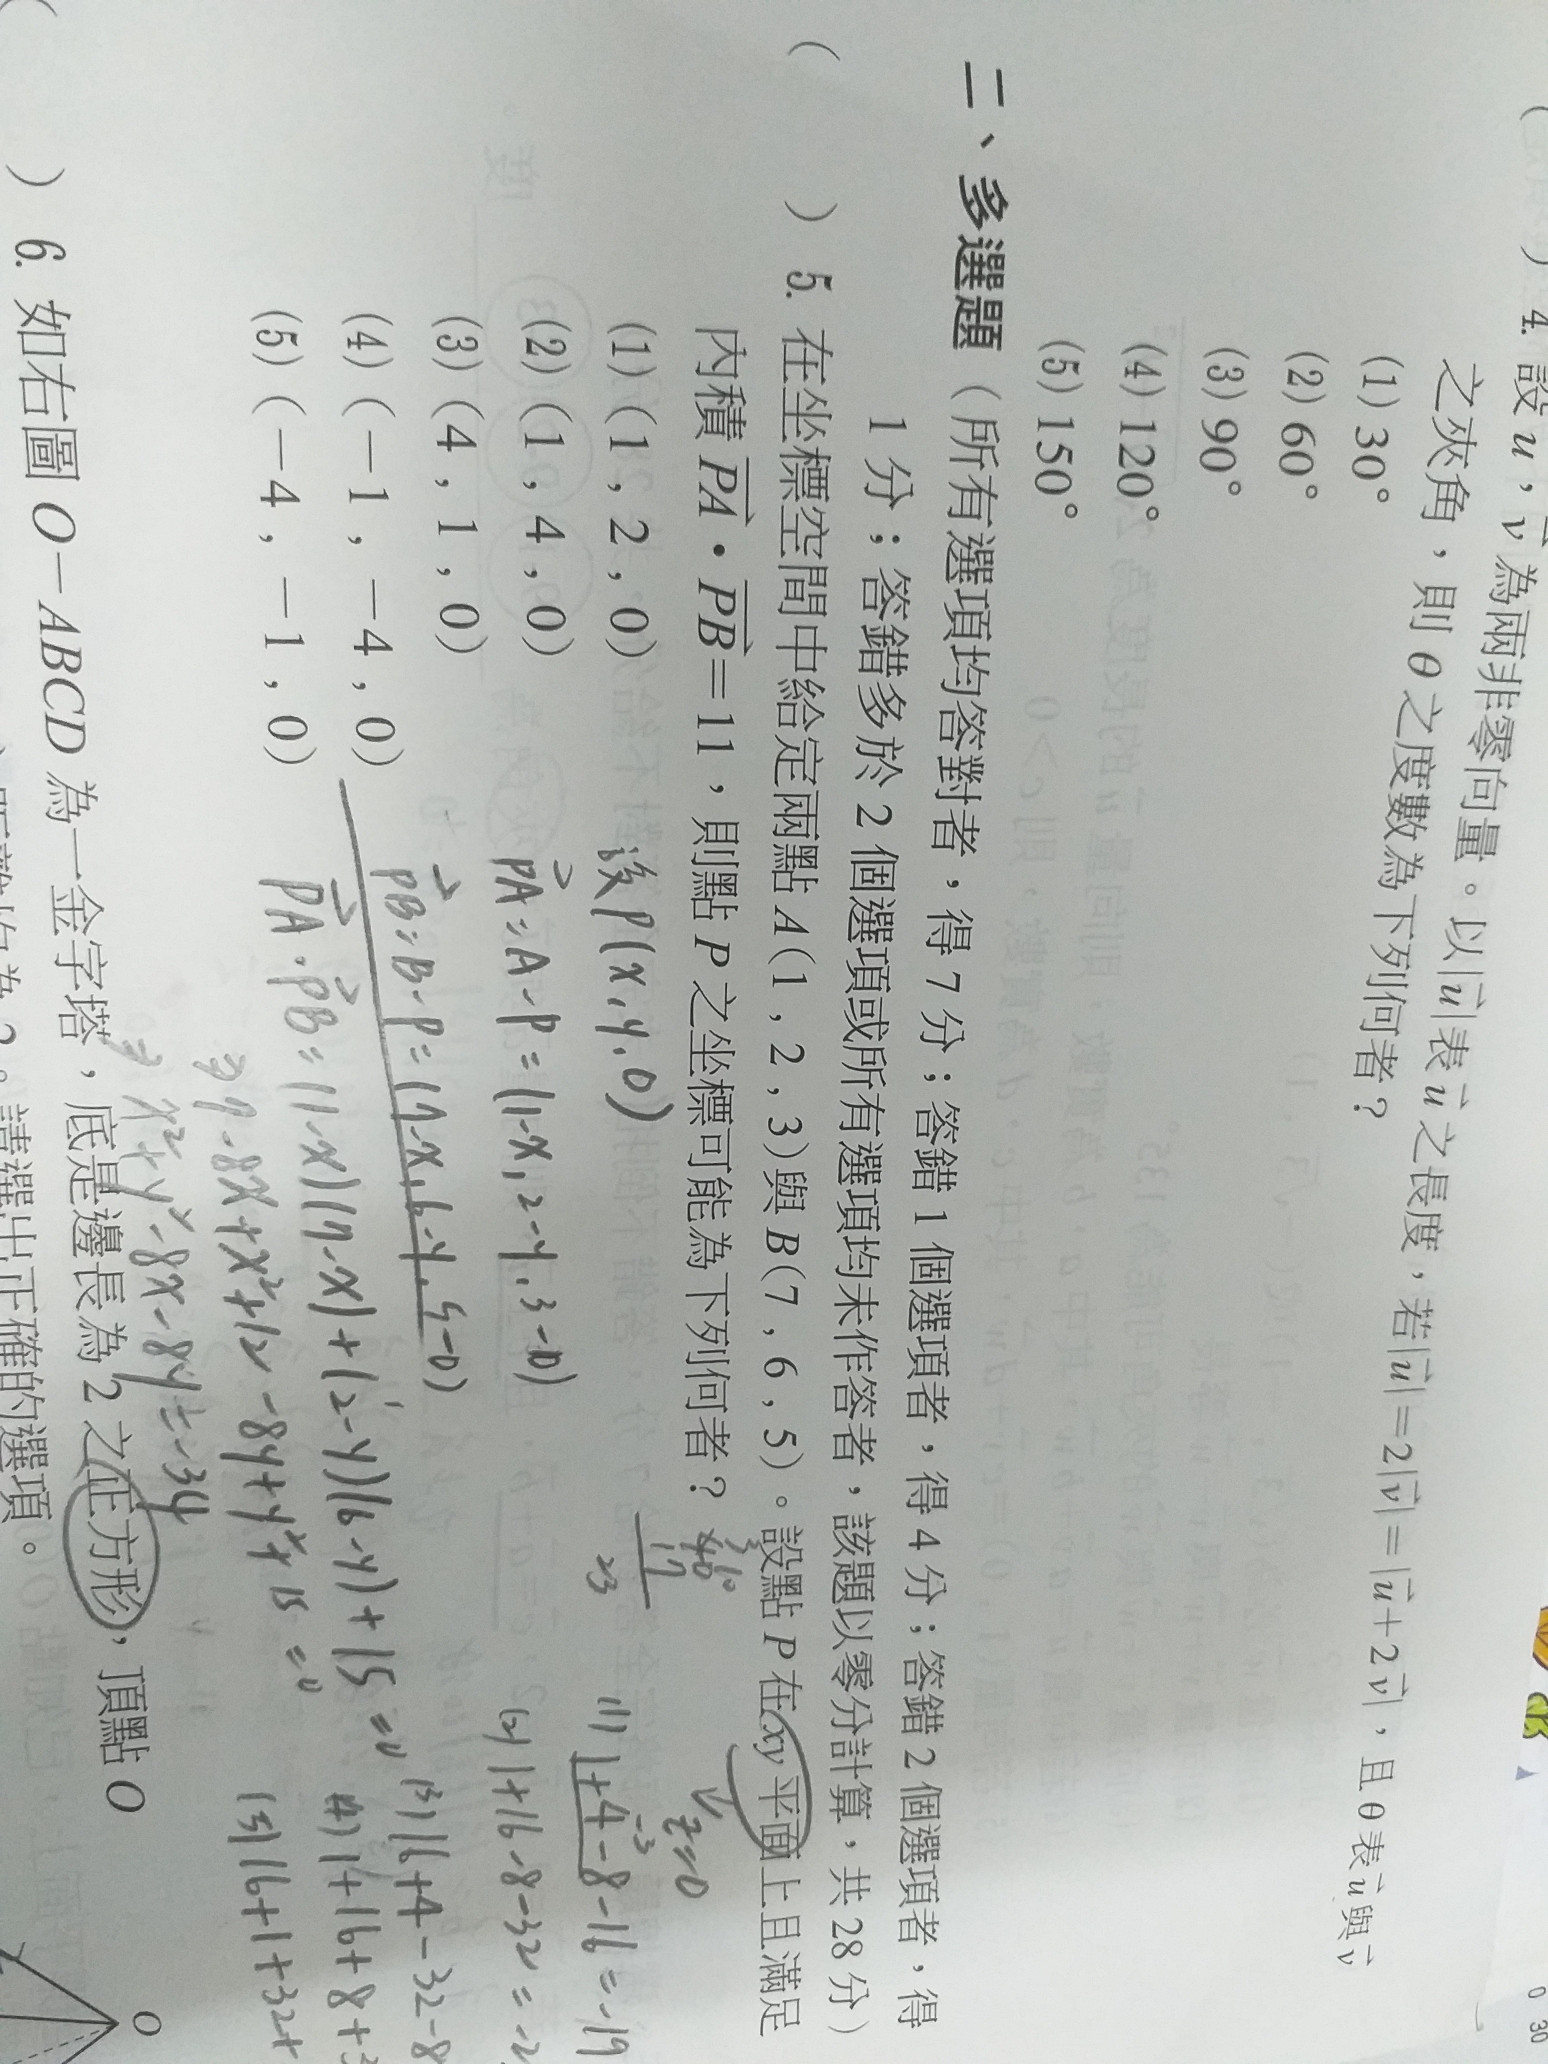 4. 設 u⃗，v⃗ 為兩非零向量。以|u⃗|表 u⃗ 之長度，若|u⃗|=2|v⃗|=|u⃗+2v⃗|，且θ表u⃗與v⃗
之夾角，則 θ 之度數為下列何者？
(1) 30°
(2) 60°
(3) 90°
(4) 120°
(5) 150°
二、多選題（所有選項均答對者，得 7 分；答錯 1 個選項者，得 4 分；答錯 2 個選項者，得
1 分；答錯多於 2 個選項或所有選項均未作答者，該題以零分計算，共 28 分）
( ) 5. 在坐標空間中給定兩點 A(1，2，3)與 B(7，6，5)。設點 P 在 xy 平面上且滿足
內積 PA⃗・PB⃗=11，則點 P 之坐標可能為下列何者？
z=0
(1)（1，2，0）
(2)（1，4，0）
(3)（4，1，0）
(4)（-1，-4，0）
(5)（-4，-1，0）
設P(x,y,0)
PA⃗=A-P=(1-x,2-y,3-0)
PB⃗=B-P=(7-x,6-y,5-0)
PA⃗・PB⃗=(1-x)(7-x)+(2-y)(6-y)+15=0
⇒7-8x+x²+12-8y+y²+15=0
⇒x²+y²-8x-8y=-34
17
23
(1) 1+4-8-16=-19
-3
(2) 1+16-8-32=-2
(3) 16+4-32-8
(4) 1+16+8+3
(5) 16+1+32+
( ) 6. 如右圖 O－ABCD 為一金字塔，底是邊長為 2 之正方形，頂點 O
請選出正確的選項。
O
0 30